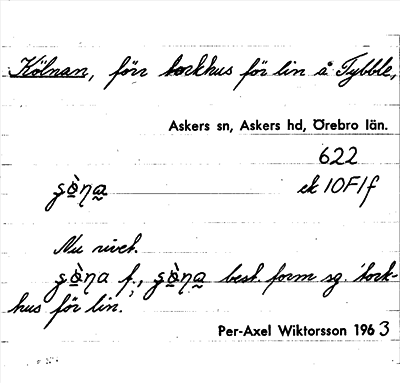 Kölnan, förr torkhus för lin å Tybble,
Askers sn, Askers hd, Örebro län.
622
ek 10F1f
Nu rivet.
f., best. form sg. 'tork-
hus för lin.'
Per-Axel Wiktorsson 1963